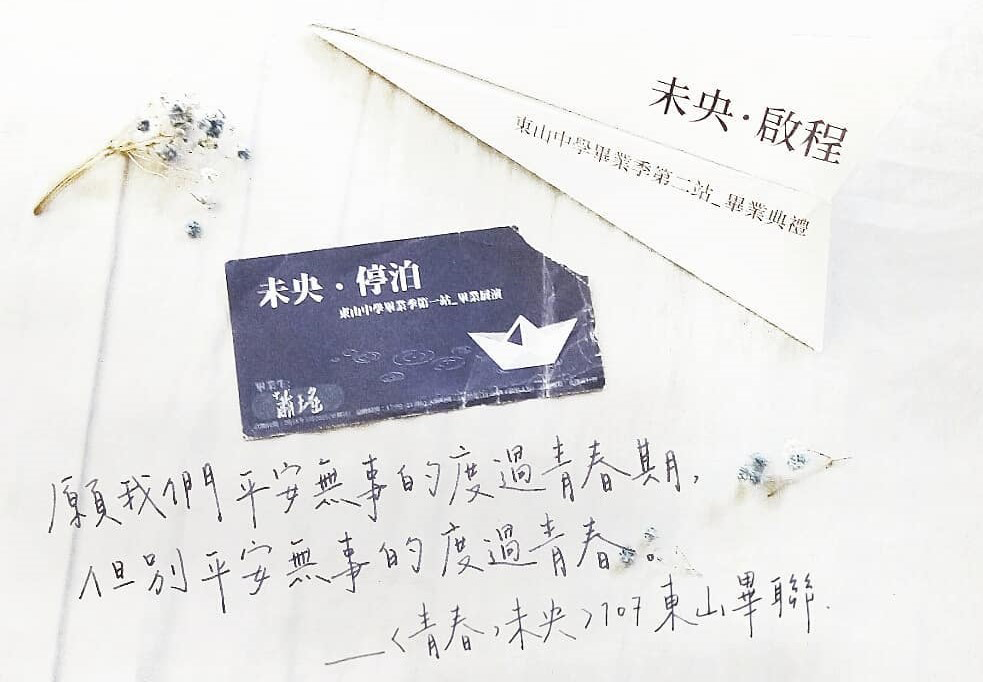 未央·啟程
東山中學畢業季第二站_畢業典禮
未央·停泊
東山中學畢業季第一站_畢業展演
畢業生:
蕭瑤
願我們平安無事的度過青春期,
但別平安無事的度過青春。
—〈青春,未央〉107東山畢聯.